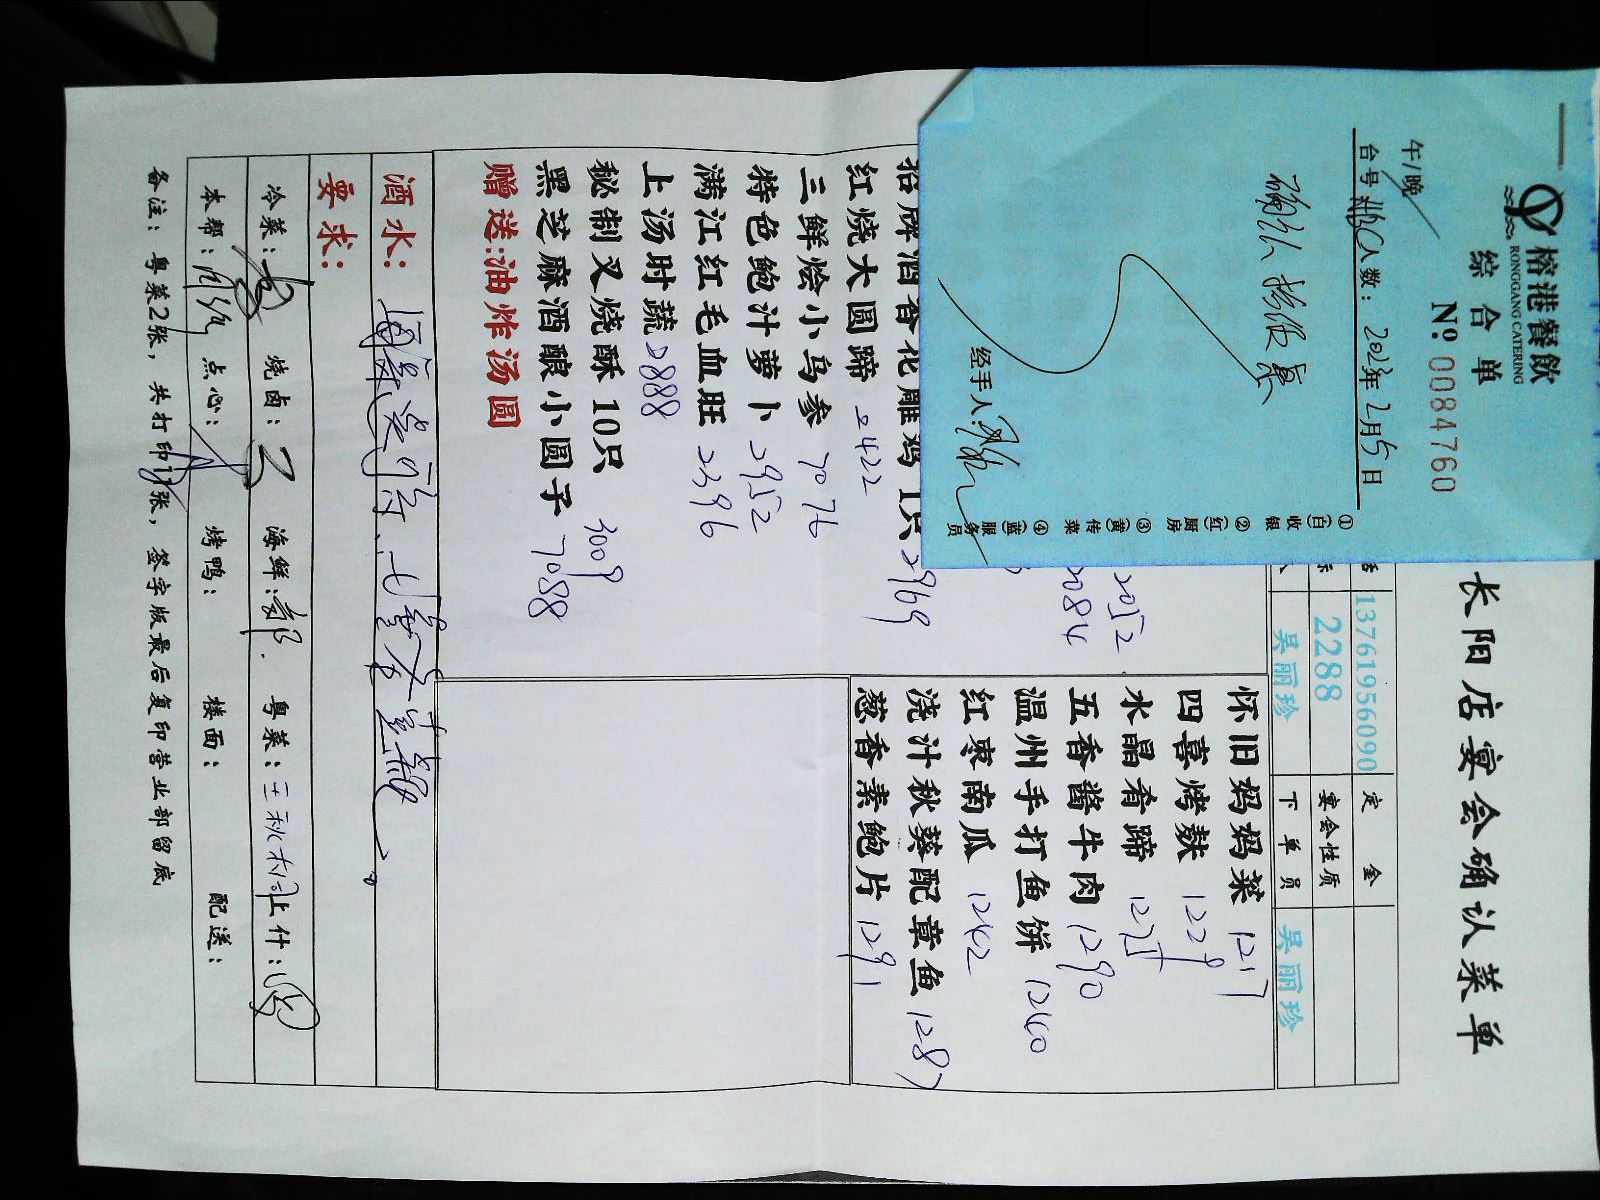 榕港餐飲
RONGGANG CATERING
綜合单
№ 0084760
午/晚
台号 人数： 2023年2月5日
经手人：
①(白)收银
②(红)厨房
③(黄)传菜
④(蓝)服务员
长阳店宴会确认菜单
13761956090 定金
2288 宴会性质
吴丽珍 下单员 吴丽珍
2052
2084
招牌酒香花雕鸡1只 2969
红烧大圆蹄 2422
三鲜烩小乌参 7076
特色鲍汁萝卜 2952
满江红毛血旺 2396
上汤时蔬 2888
秘制叉烧酥10只 3009
黑芝麻酒酿小圆子 7088
赠送:油炸汤圆
怀旧妈妈菜 1217
四喜烤麸 1229
水晶肴蹄
五香酱牛肉 1290
温州手打鱼饼 1260
红枣南瓜 1242
浇汁秋葵配章鱼 1287
葱香素鲍片 1291
酒水：
要求：
冷菜： 烧卤： 海鲜：郭 粤菜：王秋 上什：
本帮： 点心： 烤鸭： 楼面： 配送：
备注：粤菜2张，共打印 张，签字版最后复印营业部留底